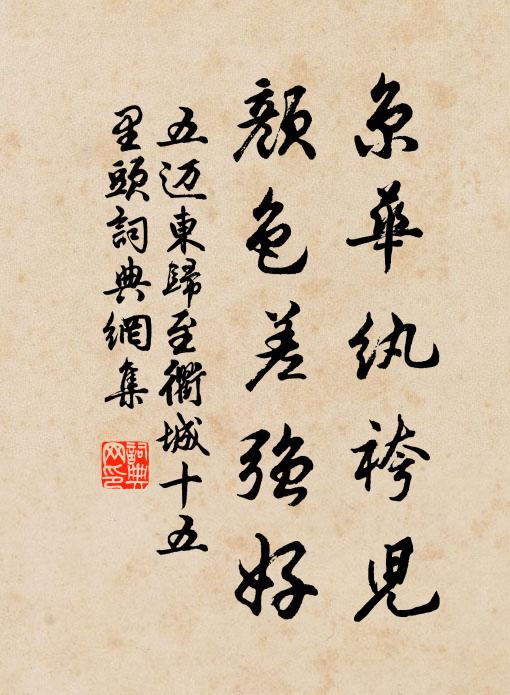 京華紈袴兒
顏色差強好
五迈東歸至衢城十五
里頭詞典網集
詞典
网印